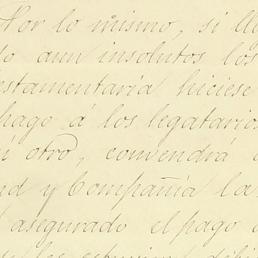 Por lo mismo, si lle
do aun insolutos los
estamentaria hiciese
pago á los legatarios
ui otro, convendrá
nd y Compañia la
asegurado el pago